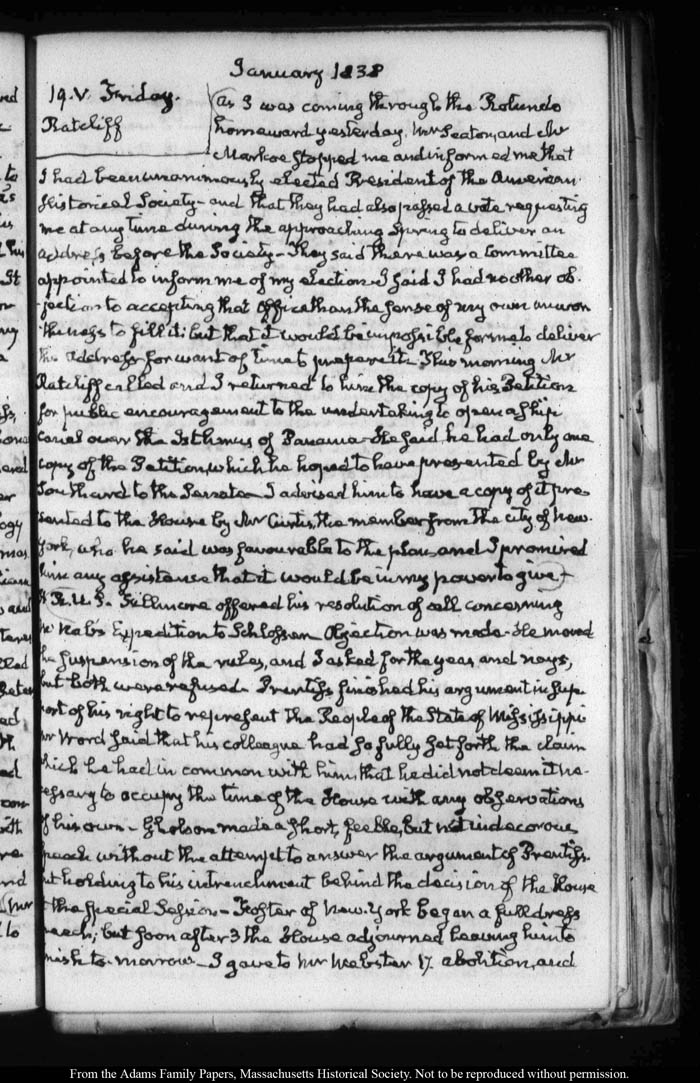 January 1838
19. V. Friday.
Ratcliff
As I was coming through the Rotundo
homeward yesterday, Mr Seaton, and Mr
Markoe stopped me and informed me that
I had been unanimously elected President of the American
Historical Society - and that they had also passed a vote requesting
me at any time during the approaching Spring to deliver an
address before the Society - They said there was a Committee
appointed to inform me of my election. I said I had no other ob-
jection to accepting that Office than the sense of my own unwor
thiness to fill it; but that it would be impossible for me to deliver
the address for want of time to prepare it. This morning Mr
Ratcliff called and I returned to him the copy of his Petition
for public encouragement to the undertaking to open a ship
canal over the Isthmus of Panama - He said he had only one
copy of the Petition, which he hoped to have presented by Mr
Southard to the Senate - I advised him to have a copy of it pre-
sented to the House by Mr Curtis, the member from the city of New-
York, who he said was favourable to the plan, and I promised
him any assistance that it would be in my power to give -
H. R. U. S. Fillmore offered his resolution of call concerning
Expedition to Schlosser. Objection was made - He moved
the suspension of the rules, and I asked for the yeas and nays,
but both were refused. Prentiss finished his argument in sup-
port of his right to represent the People of the State of Mississippi
Mr Word said that his colleague had so fully set forth the claim
which he had in common with him, that he did not deem it ne-
cessary to occupy the time of the House with any observations
of his own - Gholson made a short, feeble, but not indecorous
speech without the attempt to answer the argument of Prentiss.
but holding to his intrenchment behind the decision of the House
at the special Session - Foster of New-York began a full dress
speech; but soon after 3 the House adjourned leaving him to
finish to-morrow - I gave to Mr Webster 17. abolition, and
From the Adams Family Papers, Massachusetts Historical Society. Not to be reproduced without permission.